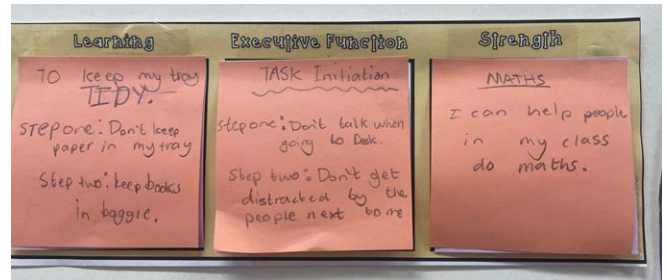 Learning
TO keep my tray
TIDY.
STEP one: Don't keep
paper in my tray
Step two: keep books
in baggie.
Executive Function
TASK Initiation
step one: Don't talk when
going to Desk.
Step two: Don't get
distracted by the
people next to me.
Strength
MATHS
I can help people
in my class
do maths.